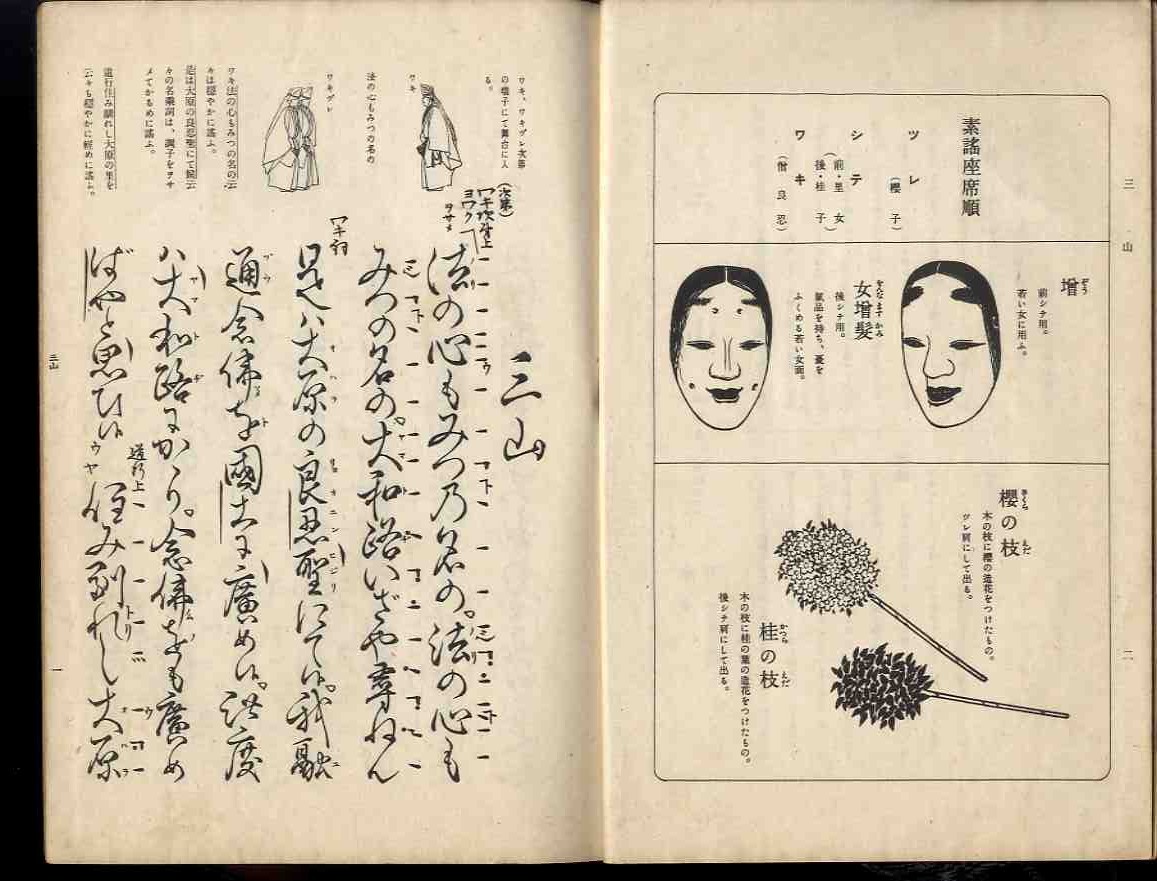 三山
二
素謠座席順
ツレ
(櫻子)
シテ
(前・里女
後・桂子)
ワキ
(僧良忍)
増
ぞう
前シテ用。
若い女に用ふ。
女増髪
をんなますかみ
後シテ用。
氣品を持ち、憂を
ふくめる若い女面。
櫻の枝
さくら えだ
木の枝に櫻の造花をつけたもの。
ツレ肩にして出る。
桂の枝
かつら えだ
木の枝に桂の葉の造花をつけたもの。
後シテ肩にして出る。
ワキ、ワキヅレ次第
の囃子にて舞台に入
る。
ワキ
法の心もみつの名の
ワキヅレ
ワキ法の心もみつの名の云
々は穏やかに謠ふ。
是は大原の良忍聖にて候云
々の名乘詞は、調子をヲサ
メてかるめに謠ふ。
道行住み馴れし大原の里を
云々も穏やかに軽めに謠ふ。
三山
(次第)
ヨワク
ヲサメ
法の心もみつ乃名の。法の心も
みつの名の。大和路いざや尋ねん
ワキ詞
是ハ大原の良忍聖にて候。我融
通念佛を國土に廣め候。洪度
ハ大和路にかゝり。念佛をも廣め
ばやと思ひ候
道行上
住み馴れし大原
三山
一